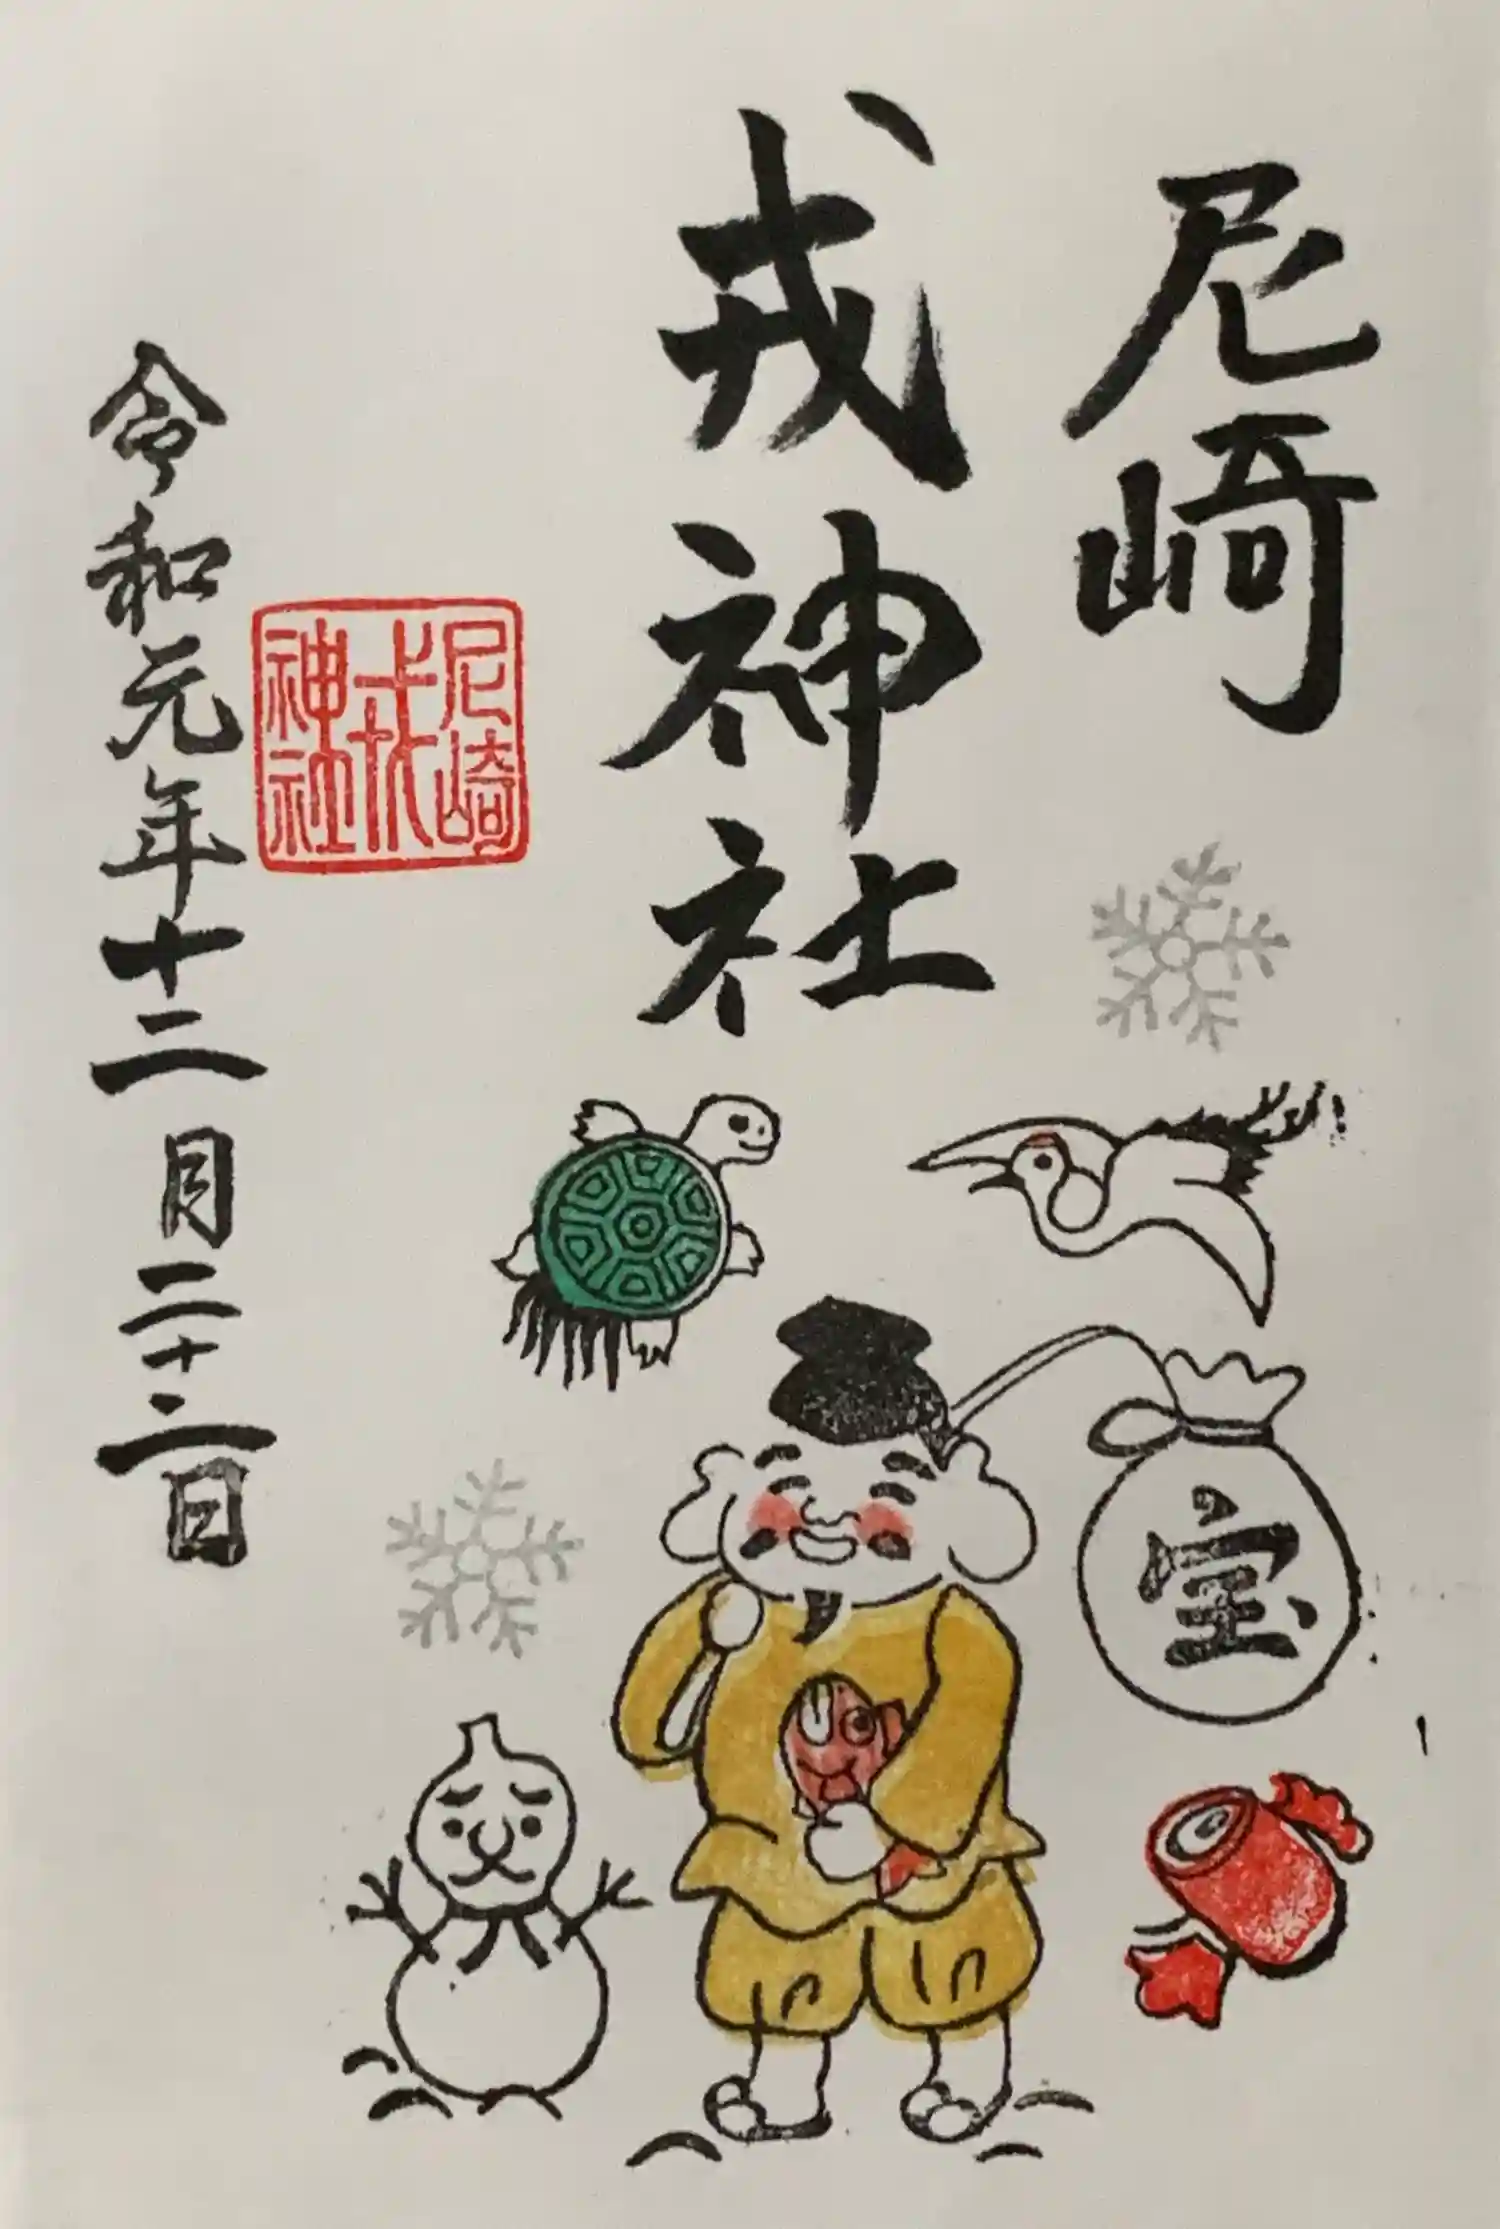 尼崎
戎神社
尼崎
戎
神社
令和元年十二月二十二日
宝